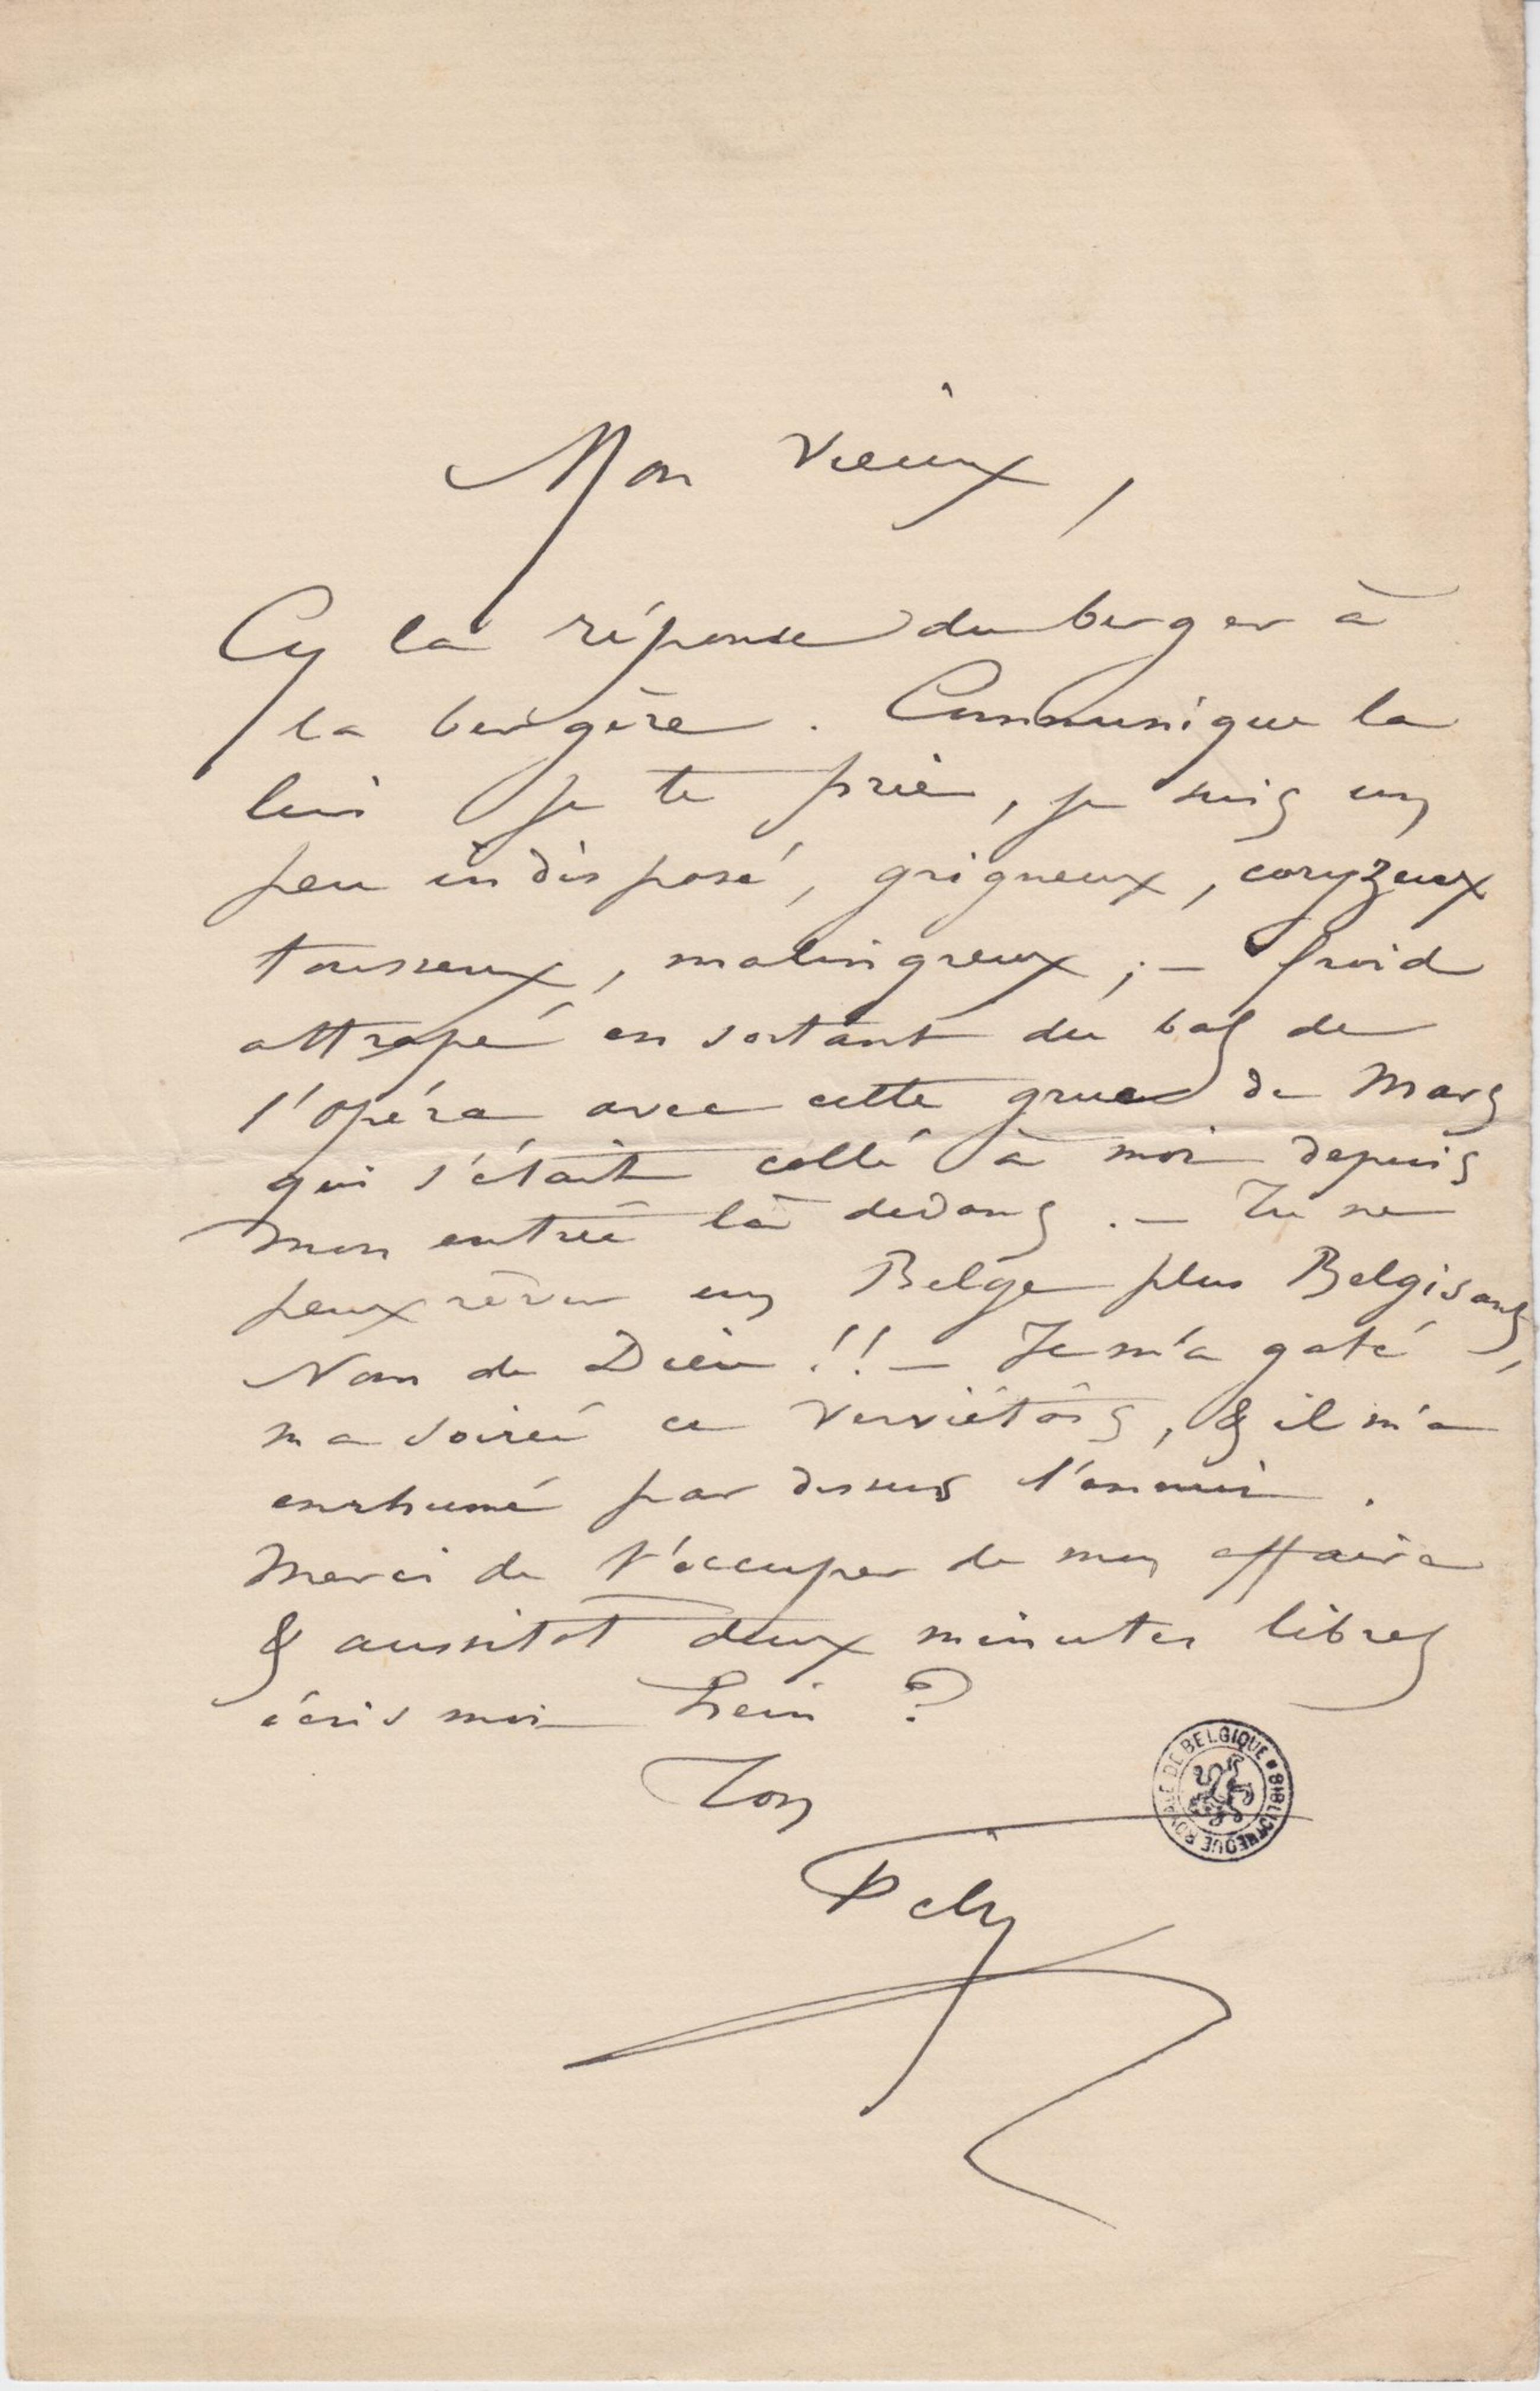 Mon vieux,
Cy la réponse du berger à
la bergère. Communique la
lui je te prie, je suis un
peu indisposé, grigneux, coryzeux
tousseux, malingreux ; – froid
attrapé en sortant du bal de
l'opéra avec cette grue de Mars
qui s'était collé à moi depuis
mon entrée là dedans. – Tu ne
peux rêver un Belge plus Belgisant,
Nom de Dieu !! – Je m'a gaté
ma soirée ce Verviétois, & il m'a
enrhumé par dessus l'ennui.
Merci de t'occuper de mon affaire
& aussitot deux minutes libres
écris moi hein ?
Ton
Fély
BIBLIOTHEQUE ROYALE DE BELGIQUE